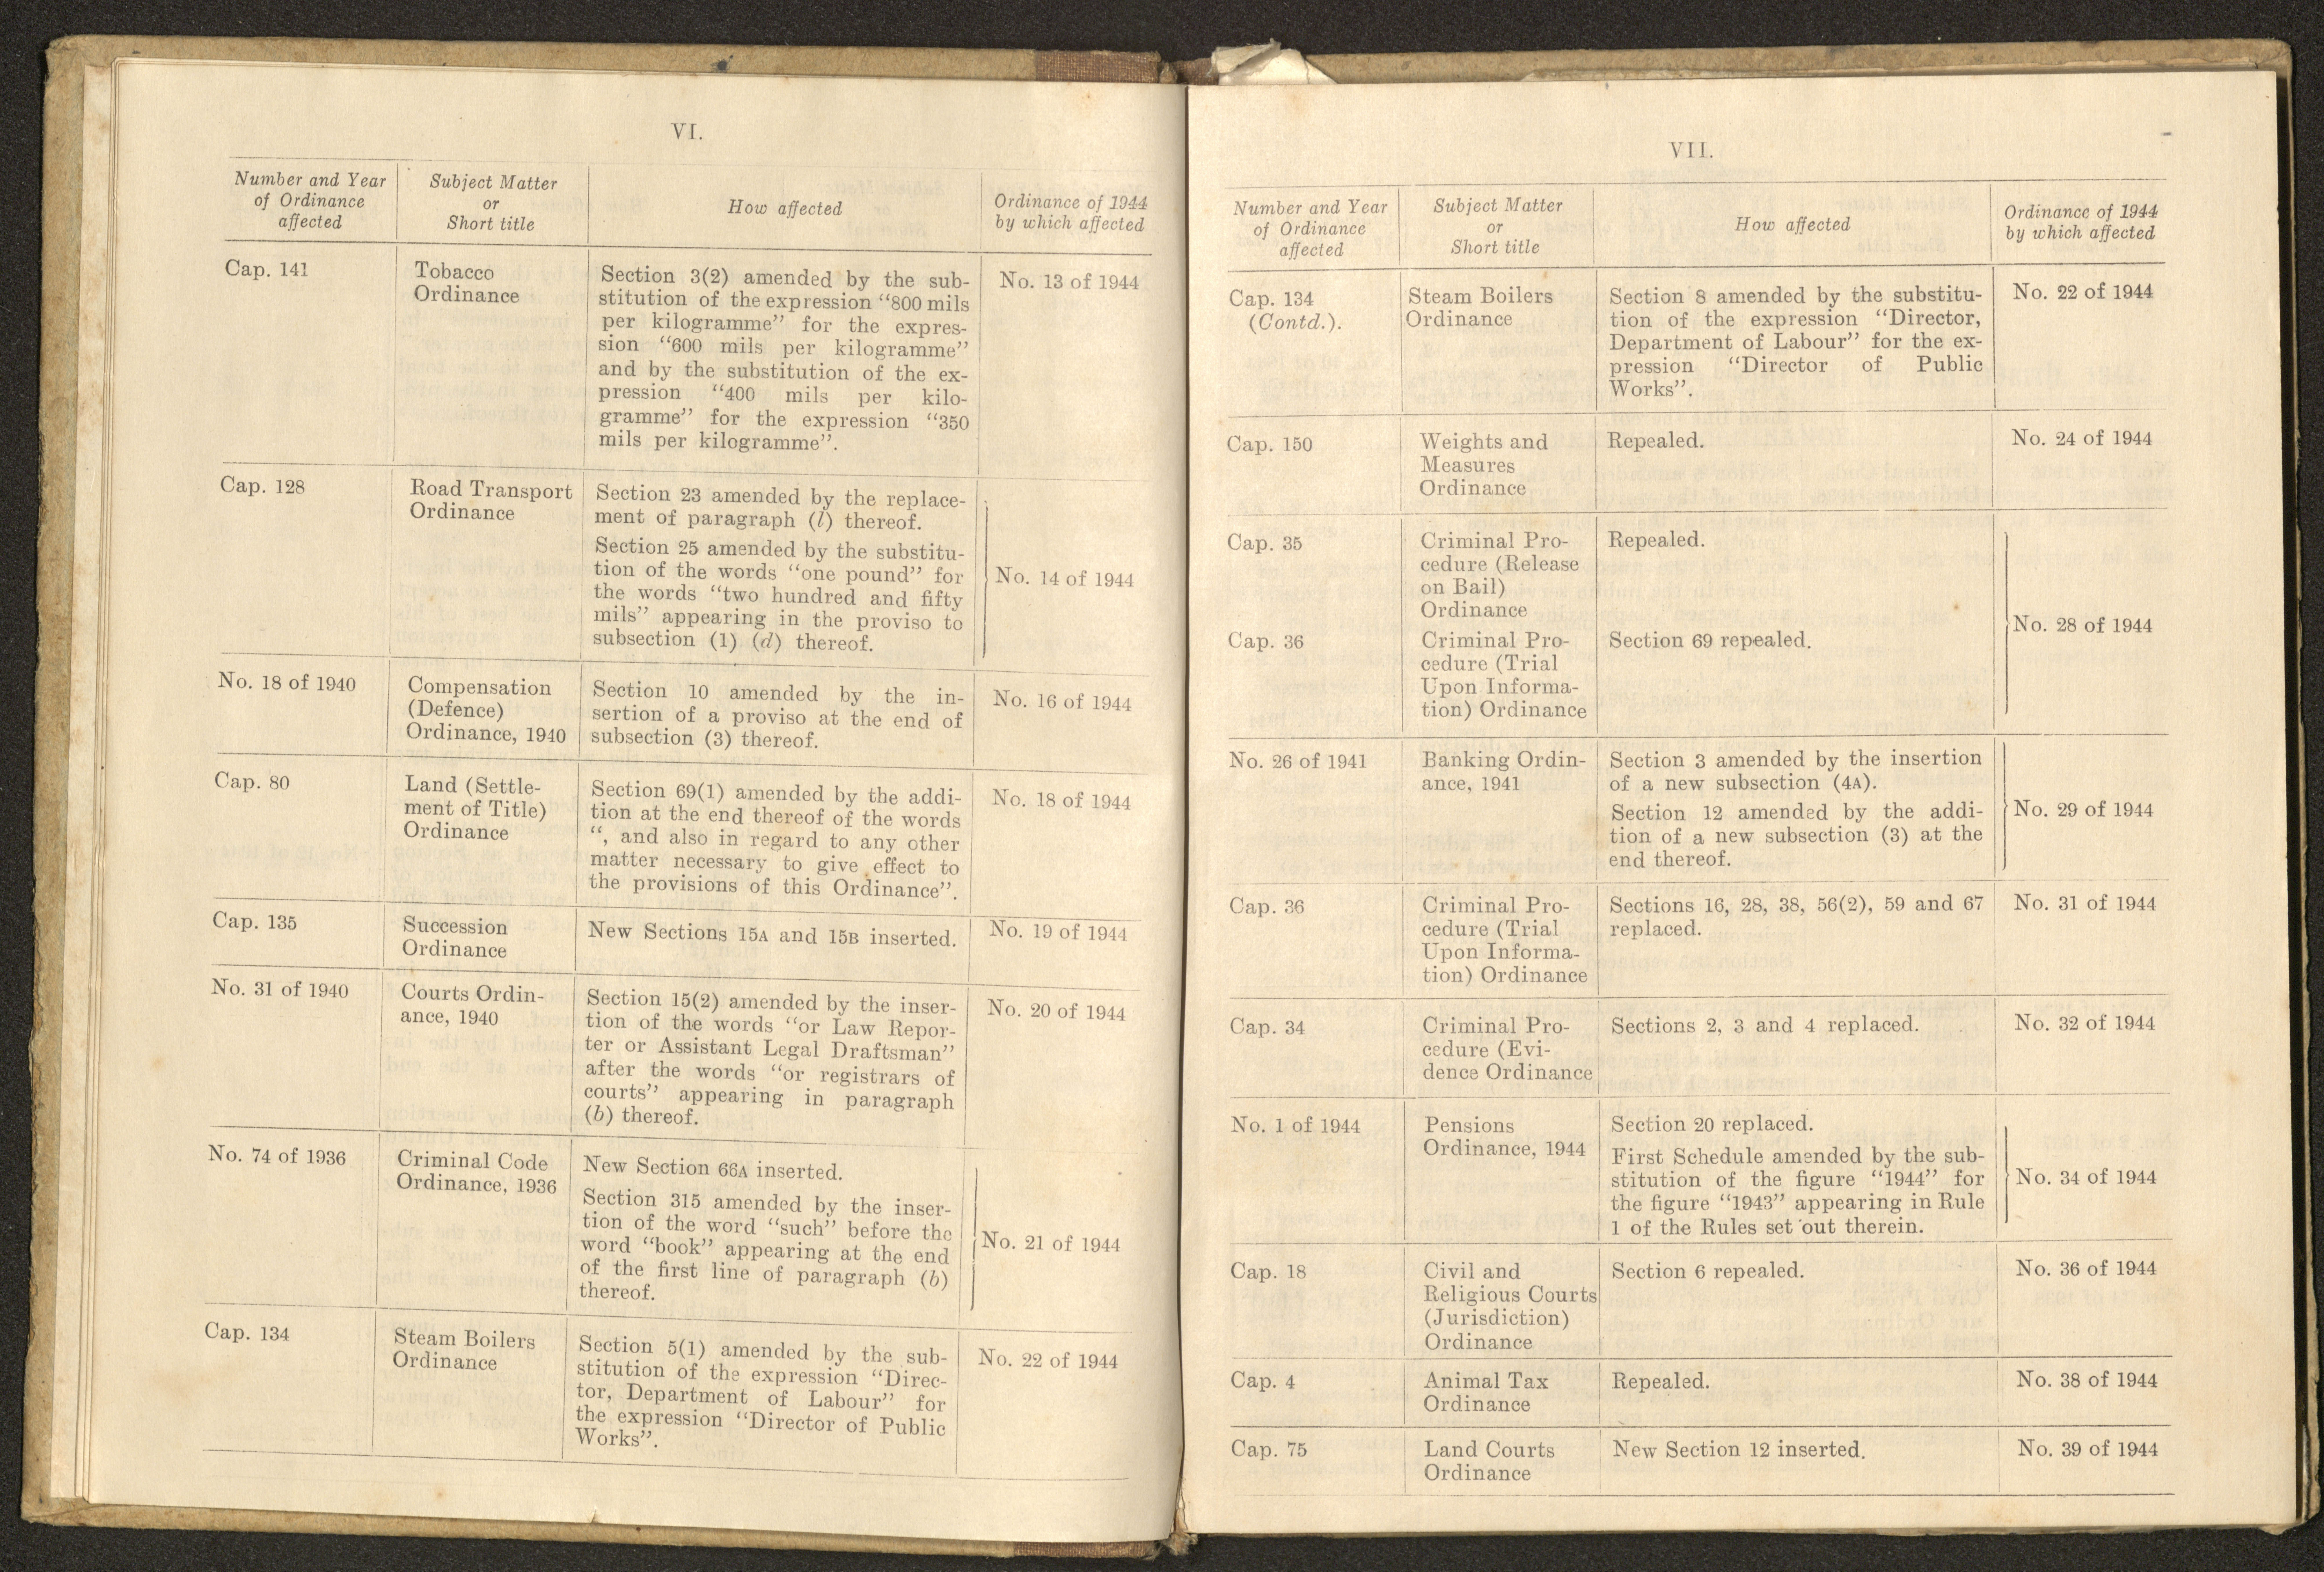 VI.
Number and Year
of Ordinance
affected
Subject Matter
or
Short title
How affected
Ordinance of 1944
by which affected
Cap. 141
Tobacco
Ordinance
Section 3(2) amended by the sub-
stitution of the expression “800 mils
per kilogramme” for the expres-
sion “600 mils per kilogramme”
and by the substitution of the ex-
pression “400 mils per kilo-
gramme” for the expression “350
mils per kilogramme”.
No. 13 of 1944
Cap. 128
Road Transport
Ordinance
Section 23 amended by the replace-
ment of paragraph (l) thereof.
Section 25 amended by the substitu-
tion of the words “one pound” for
the words “two hundred and fifty
mils” appearing in the proviso to
subsection (1) (d) thereof.
No. 14 of 1944
No. 18 of 1940
Compensation
(Defence)
Ordinance, 1940
Section 10 amended by the in-
sertion of a proviso at the end of
subsection (3) thereof.
No. 16 of 1944
Cap. 80
Land (Settle-
ment of Title)
Ordinance
Section 69(1) amended by the addi-
tion at the end thereof of the words
“, and also in regard to any other
matter necessary to give effect to
the provisions of this Ordinance”.
No. 18 of 1944
Cap. 135
Succession
Ordinance
New Sections 15A and 15B inserted.
No. 19 of 1944
No. 31 of 1940
Courts Ordin-
ance, 1940
Section 15(2) amended by the inser-
tion of the words “or Law Repor-
ter or Assistant Legal Draftsman”
after the words “or registrars of
courts” appearing in paragraph
(b) thereof.
No. 20 of 1944
No. 74 of 1936
Criminal Code
Ordinance, 1936
New Section 66A inserted.
Section 315 amended by the inser-
tion of the word “such” before the
word “book” appearing at the end
of the first line of paragraph (b)
thereof.
No. 21 of 1944
Cap. 134
Steam Boilers
Ordinance
Section 5(1) amended by the sub-
stitution of the expression “Direc-
tor, Department of Labour” for
the expression “Director of Public
Works”.
No. 22 of 1944
VII.
Number and Year
of Ordinance
affected
Subject Matter
or
Short title
How affected
Ordinance of 1944
by which affected
Cap. 134
(Contd.).
Steam Boilers
Ordinance
Section 8 amended by the substitu-
tion of the expression “Director,
Department of Labour” for the ex-
pression “Director of Public
Works”.
No. 22 of 1944
Cap. 150
Weights and
Measures
Ordinance
Repealed.
No. 24 of 1944
Cap. 35
Criminal Pro-
cedure (Release
on Bail)
Ordinance
Repealed.
Cap. 36
Criminal Pro-
cedure (Trial
Upon Informa-
tion) Ordinance
Section 69 repealed.
No. 28 of 1944
No. 26 of 1941
Banking Ordin-
ance, 1941
Section 3 amended by the insertion
of a new subsection (4A).
Section 12 amended by the addi-
tion of a new subsection (3) at the
end thereof.
No. 29 of 1944
Cap. 36
Criminal Pro-
cedure (Trial
Upon Informa-
tion) Ordinance
Sections 16, 28, 38, 56(2), 59 and 67
replaced.
No. 31 of 1944
Cap. 34
Criminal Pro-
cedure (Evi-
dence Ordinance
Sections 2, 3 and 4 replaced.
No. 32 of 1944
No. 1 of 1944
Pensions
Ordinance, 1944
Section 20 replaced.
First Schedule amended by the sub-
stitution of the figure “1944” for
the figure “1943” appearing in Rule
1 of the Rules set out therein.
No. 34 of 1944
Cap. 18
Civil and
Religious Courts
(Jurisdiction)
Ordinance
Section 6 repealed.
No. 36 of 1944
Cap. 4
Animal Tax
Ordinance
Repealed.
No. 38 of 1944
Cap. 75
Land Courts
Ordinance
New Section 12 inserted.
No. 39 of 1944